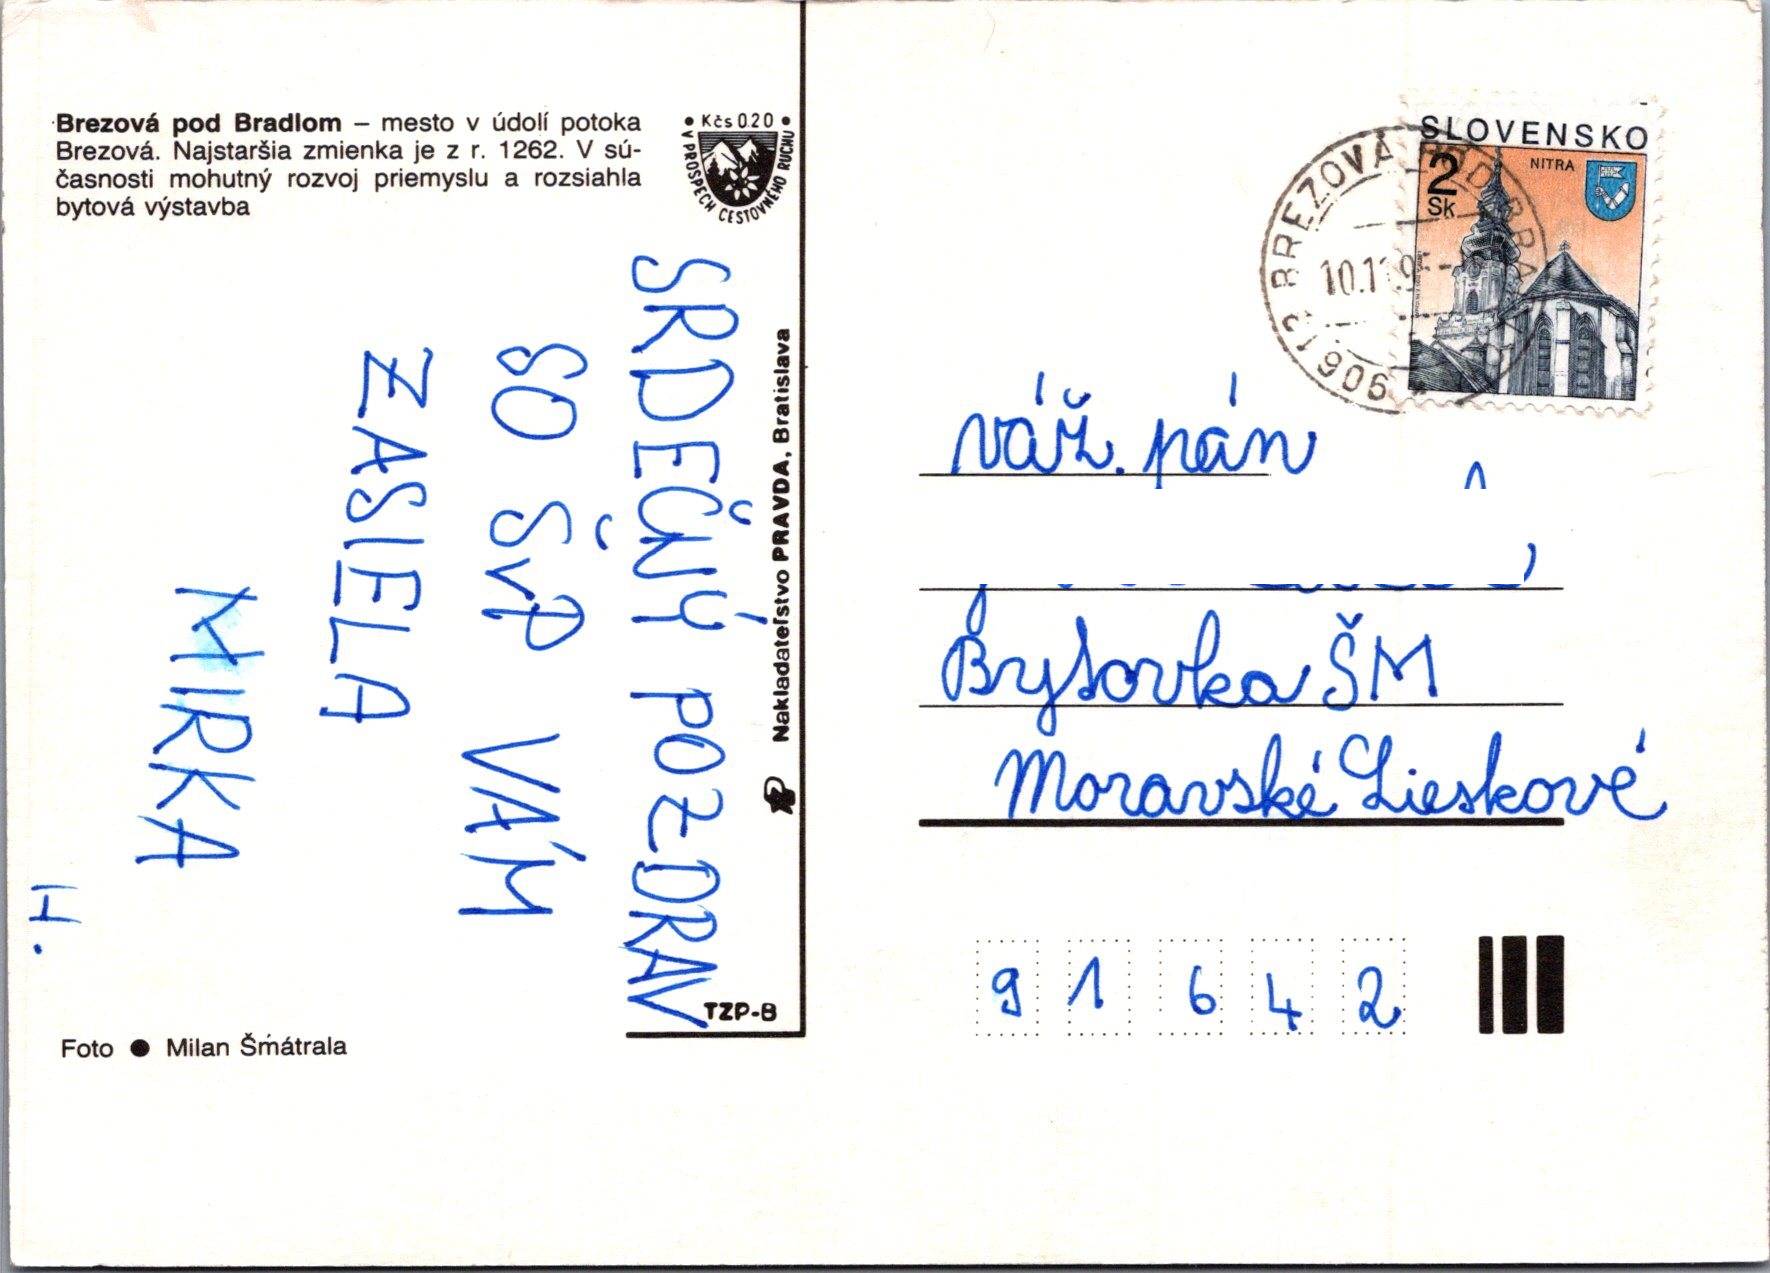 Brezová pod Bradlom – mesto v údolí potoka
Brezová. Najstaršia zmienka je z r. 1262. V sú-
časnosti mohutný rozvoj priemyslu a rozsiahla
bytová výstavba
Kčs 0.20
V PROSPECH CESTOVNÉHO RUCHU
SRDEČNÝ POZDRAV
SO ŠvP VÁM
ZASIELA
MIRKA
H.
Nakladateľstvo PRAVDA, Bratislava
TZP-B
Foto ● Milan Šmátrala
SLOVENSKO
NITRA
2
Sk
906 13 BREZOVÁ POD BRA
váž. pán
Bysovka ŠM
Moravské Lieskové
91642